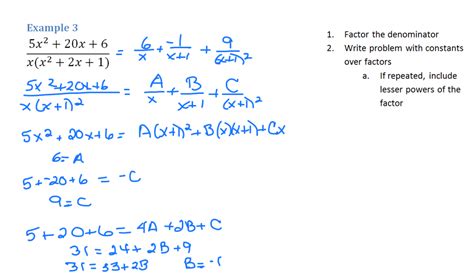 Example 3
5x² + 20x + 6 / x(x² + 2x + 1) = 6/x + -1/x+1 + 9/(x+1)²
5x²+20x+6 / x(x+1)² = A/x + B/x+1 + C/(x+1)²
5x² + 20x + 6 = A(x+1)² + B(x)(x+1) + Cx
6 = A
5 + -20 + 6 = -C
9 = C
5 + 20 + 6 = 4A + 2B + C
31 = 24 + 2B + 9
31 = 33 + 2B B = -1
1. Factor the denominator
2. Write problem with constants
over factors
a. If repeated, include
lesser powers of the
factor